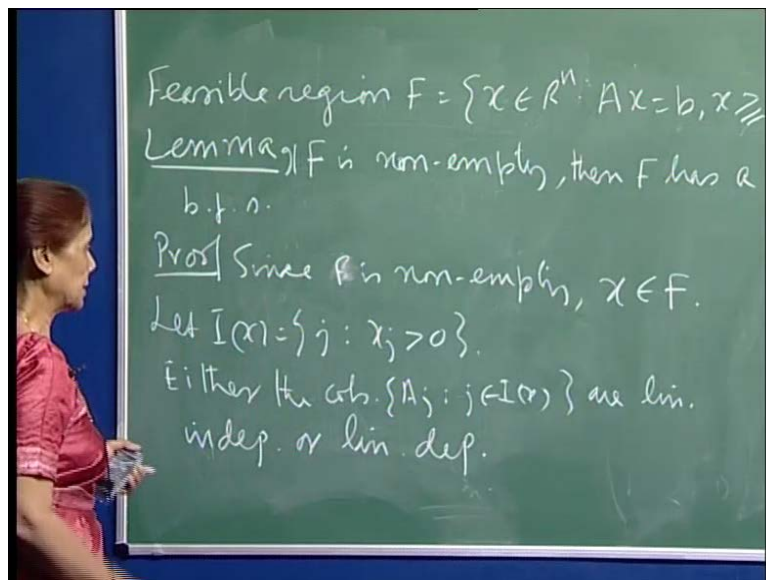 Feasible region F = {x ∈ Rⁿ: Ax = b, x ≥
Lemma If F is non-empty, then F has a
b.f.s.
Proof Since F is non-empty, x ∈ F.
Let I(x) = {j : xⱼ > 0}.
Either the cols. {Aⱼ : j ∈ I(x)} are lin.
indep. or lin. dep.